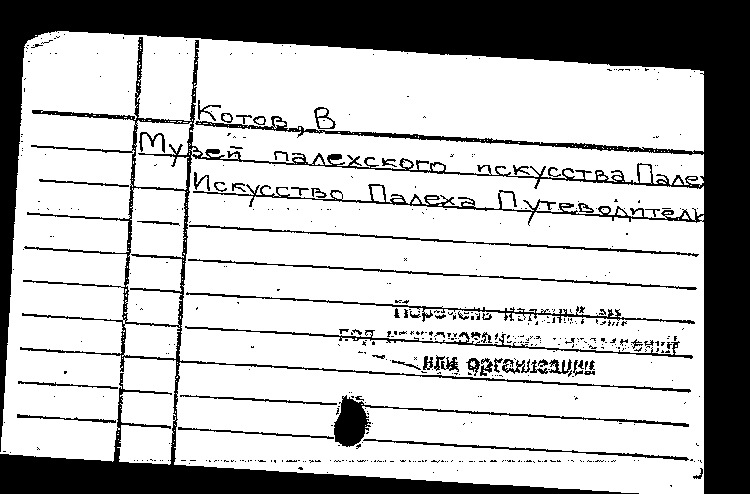 Котов, В
Музей палехского искусства. Палех
Искусство Палеха Путеводитель
Перечень изданий см.
под наименованием учреждений
или организации